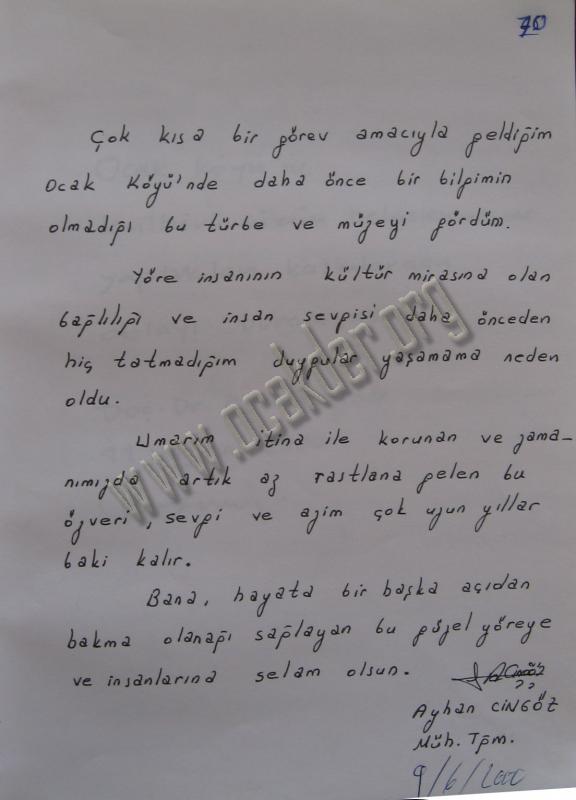 40
Çok kısa bir görev amacıyla geldiğim
Ocak Köyü'nde daha önce bir bilgimin
olmadığı bu türbe ve müzeyi gördüm.
Yöre insanının kültür mirasına olan
bağlılığı ve insan sevgisi daha önceden
hiç tatmadığım duygular yaşamama neden
oldu.
Umarım itina ile korunan ve zama-
nımızda artık az rastlana gelen bu
özveri, sevgi ve azim çok uzun yıllar
baki kalır.
Bana, hayata bir başka açıdan
bakma olanağı sağlayan bu güzel yöreye
ve insanlarına selam olsun.
Ayhan CİNGÖZ
Müh. Tğm.
9/6/2000
www.ocakder.org